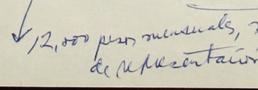 12,000 pesos mensuales,
de representación